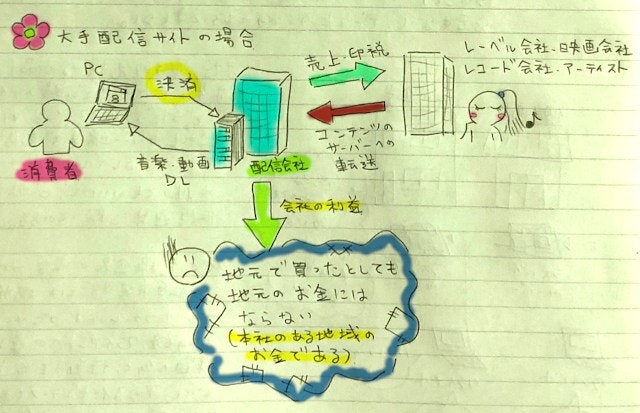 大手配信サイトの場合
PC
決済
売上・印税
レーベル会社・映画会社
レコード会社・アーティスト
消費者
音楽・動画
DL
配信会社
コンテンツの
サーバーへの
転送
会社の利益
地元で買ったとしても
地元のお金には
ならない
(本社のある地域の
お金である)